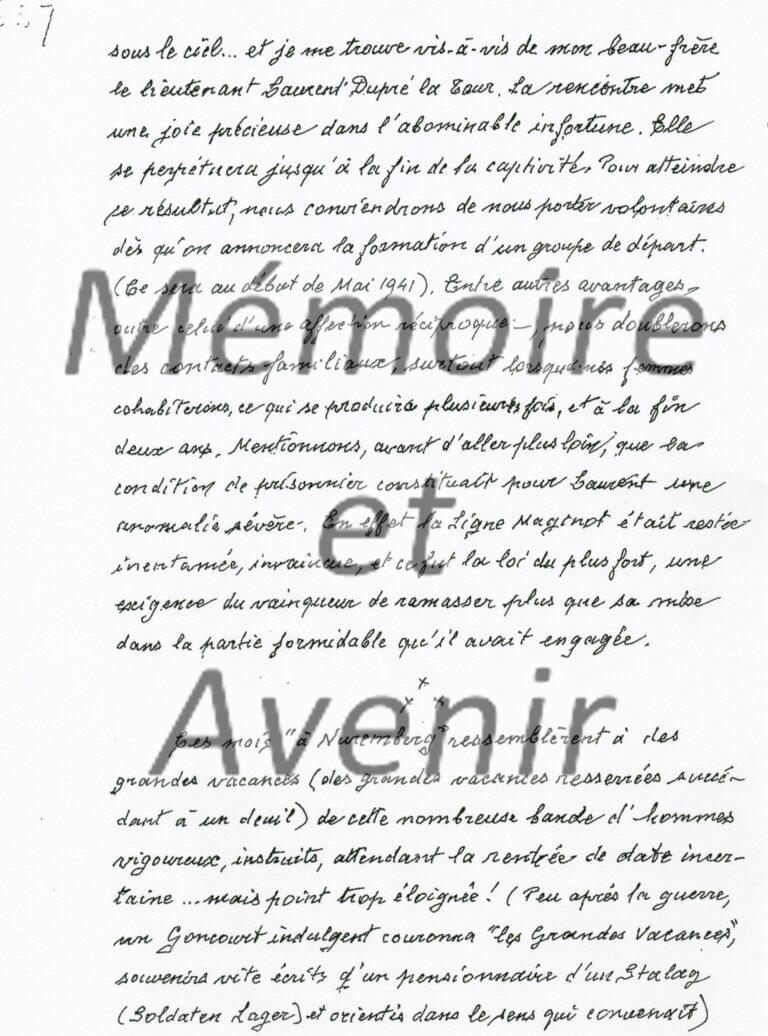 7
sous le ciel... et je me trouve vis-à-vis de mon beau-frère
le lieutenant Laurent Dupré la Tour. La rencontre met
une joie précieuse dans l'abominable infortune. Elle
se perpétuera jusqu'à la fin de la captivité. Pour atteindre
ce résultat, nous conviendrons de nous porter volontaires
dès qu'on annoncera la formation d'un groupe de départ.
(Ce sera au début de Mai 1941). Entre autres avantages,
outre celui d'une affection réciproque -, nous doublerons
des contacts familiaux, surtout lorsque nos femmes
cohabiterons, ce qui se produira plusieurs fois, et à la fin
deux ans. Mentionnons, avant d'aller plus loin, que la
condition de prisonnier constituait pour Laurent une
anomalie sévère. En effet la Ligne Maginot était restée
inentamée, invaincue, et ce fut la loi du plus fort, une
exigence du vainqueur de ramasser plus que sa mise
dans la partie formidable qu'il avait engagée.
x x x
Ces mois "à Nuremberg" ressemblèrent à des
grandes vacances (des grandes vacances resserrées succé-
dant à un deuil) de cette nombreuse bande d'hommes
vigoureux, instruits, attendant la rentrée de date incer-
taine... mais point trop éloignée! (Peu après la guerre,
un Goncourt indulgent couronna "les Grandes Vacances",
souvenirs vite écrits d'un pensionnaire d'un Stalag
(Soldaten Lager) et orientés dans le sens qui convenait)
Mémoire
et
Avenir